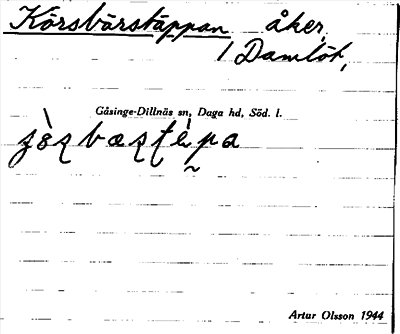 Körsbärstäppan åker,
/ Damlöt,
Gåsinge-Dillnäs sn, Daga hd, Söd. l.
Artur Olsson 1944